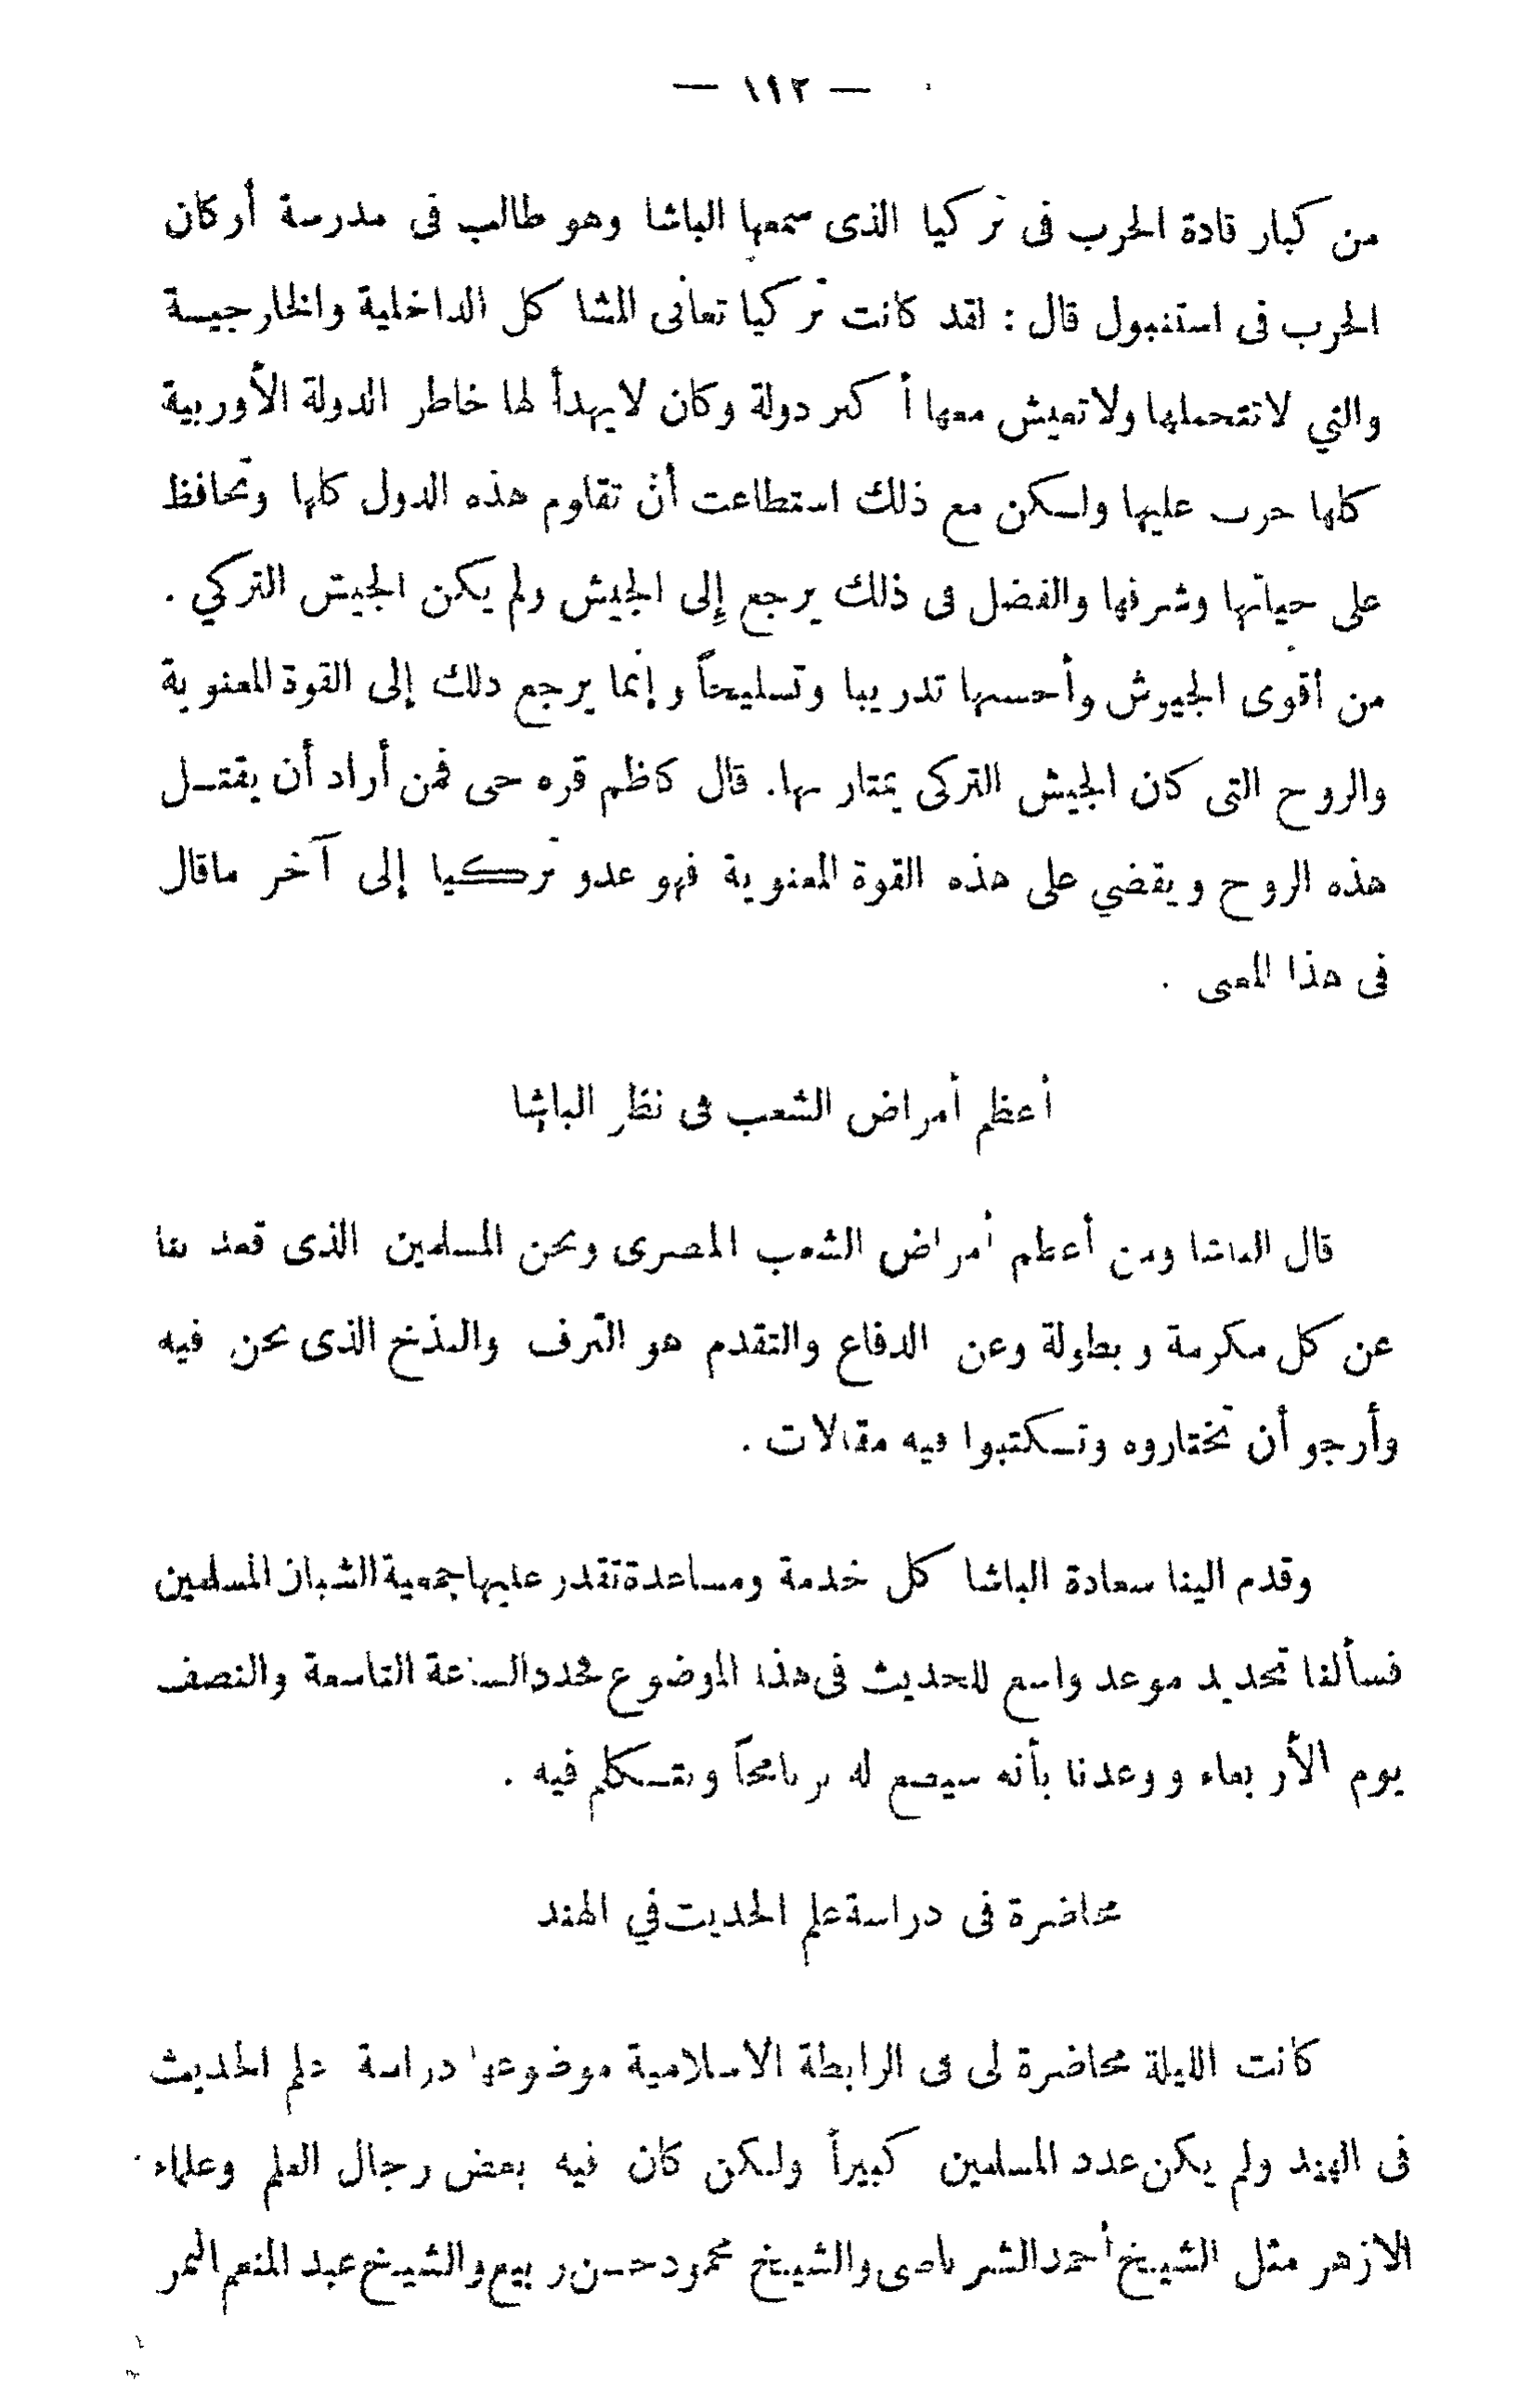 — ١٩٢ —
من كبار قادة الحرب فى تركيا الذى سمعها الباشا وهو طالب فى مدرسة أركان
الحرب فى استنبول قال : لقد كانت تركيا تعانى المشاكل الداخلية والخارجيـة
والتي لاتتحملها ولاتعيش معها أكبر دولة وكان لايهدأ لها خاطر الدولة الأوربية
كلها حرب عليها ولـكن مع ذلك استطاعت أن تقاوم هذه الدول كلها وتحافظ
على حياتها وشرفها والفضل فى ذلك يرجع إلى الجيش ولم يكن الجيش التركي .
من أقوى الجيوش وأحسنها تدريبا وتسليحاً وإنما يرجع ذلك إلى القوة المعنوية
والروح التى كان الجيش التركى يمتاز بها. قال كاظم قره حى فمن أراد أن يقتـل
هذه الروح ويقضي على هذه القوة المعنوية فهو عدو تركـيا إلى آخر ماقال
فى هذا المعنى .
أعظم أمراض الشعب فى نظر الباشا
قال الباشا ومن أعظم أمراض الشعب المصرى ونحن المسلمين الذى قعد بنا
عن كل مكرمة وبطولة وعن الدفاع والتقدم هو الترف والبذخ الذى نحن فيه
وأرجو أن تختاروه وتـكتبوا فيه مقالات .
وقدم الينا سعادة الباشا كل خدمة ومساعدة تقدر عليها جمعية الشبان المسلمين
فسألنا تحديد موعد واسع للحديث فى هذا الموضوع فحدد الساعة التاسعة والنصف
يوم الأربعاء ووعدنا بأنه سيضع له برنامجاً ونتـكلم فيه .
محاضرة فى دراسة علم الحديث في الهند
كانت الليلة محاضرة لى فى الرابطة الاسلامية موضوعها دراسة علم الحديث
فى الهند ولم يكن عدد المسلمين كبيراً ولـكن كان فيه بعض رجال العلم وعلماء
الازهر مثل الشيخ أحمد الشرباصى والشيخ محمود حسن ربيع والشيخ عبد المنعم النمر